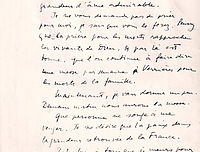 grandeur d'âme admirable.
Je ne vous demande pas de prier
pour moi, je sais que vous le ferez. Pensez
que la prière pour les morts rapproche
les vivants de Dieu, et par là est
bonne, que l'on continue à faire dire
une messe par semaine à Verrières pour
les morts de la famille.
Maintenant, je vais dormir un peu.
Demain matin nous aurons la messe.
Que personne ne songe à me
venger. Je ne désire que la paix dans
la grandeur retrouvée de la France.